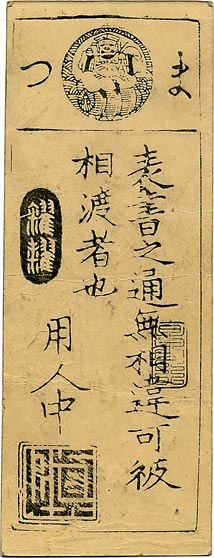 まつ
表書之通無相違可被
相渡者也
用人中